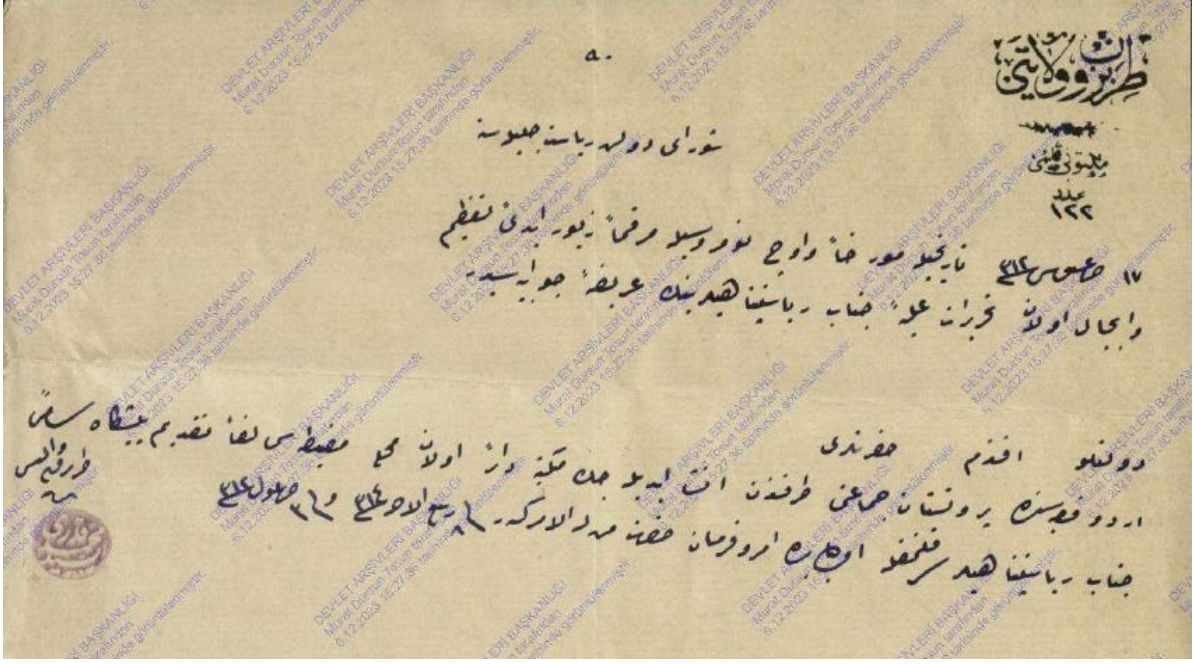 طربزون ولايتى
مكتوبى قلمى
عدد
١٢٢
شوراى دولت رياست جليله سنه
١٧ اغستوس ٣١٢ تاريخيله مورخاً واوچ نومروسيله مرقماً زيور ايدئ تعظيم
وابجال اولان تحريرات عليهٔ جناب رياستپناهيلرينك عريضهٔ جوابيه سيدر
دولتلو افندم حضرتلرى
اردو قصبه سنده پروتستان جماعتى طرفندن انشا ايديله جك مكتبه دائر اولان محلى مضبطه سى لفاً تقديم پيشكاه سامئ
جناب رياستپناهيلرى قلنمغله اولبابده امر وفرمان حضرت من له الامركدر ربيع الاخر ٣١٤ و ايلول ٣١٢
طربزون واليسى
DEVLET ARŞİVLERİ BAŞKANLIĞI
Murat Dursun Tosun tarafından
6.12.2023 15:27:36 tarihinde görüntülenmiştir.